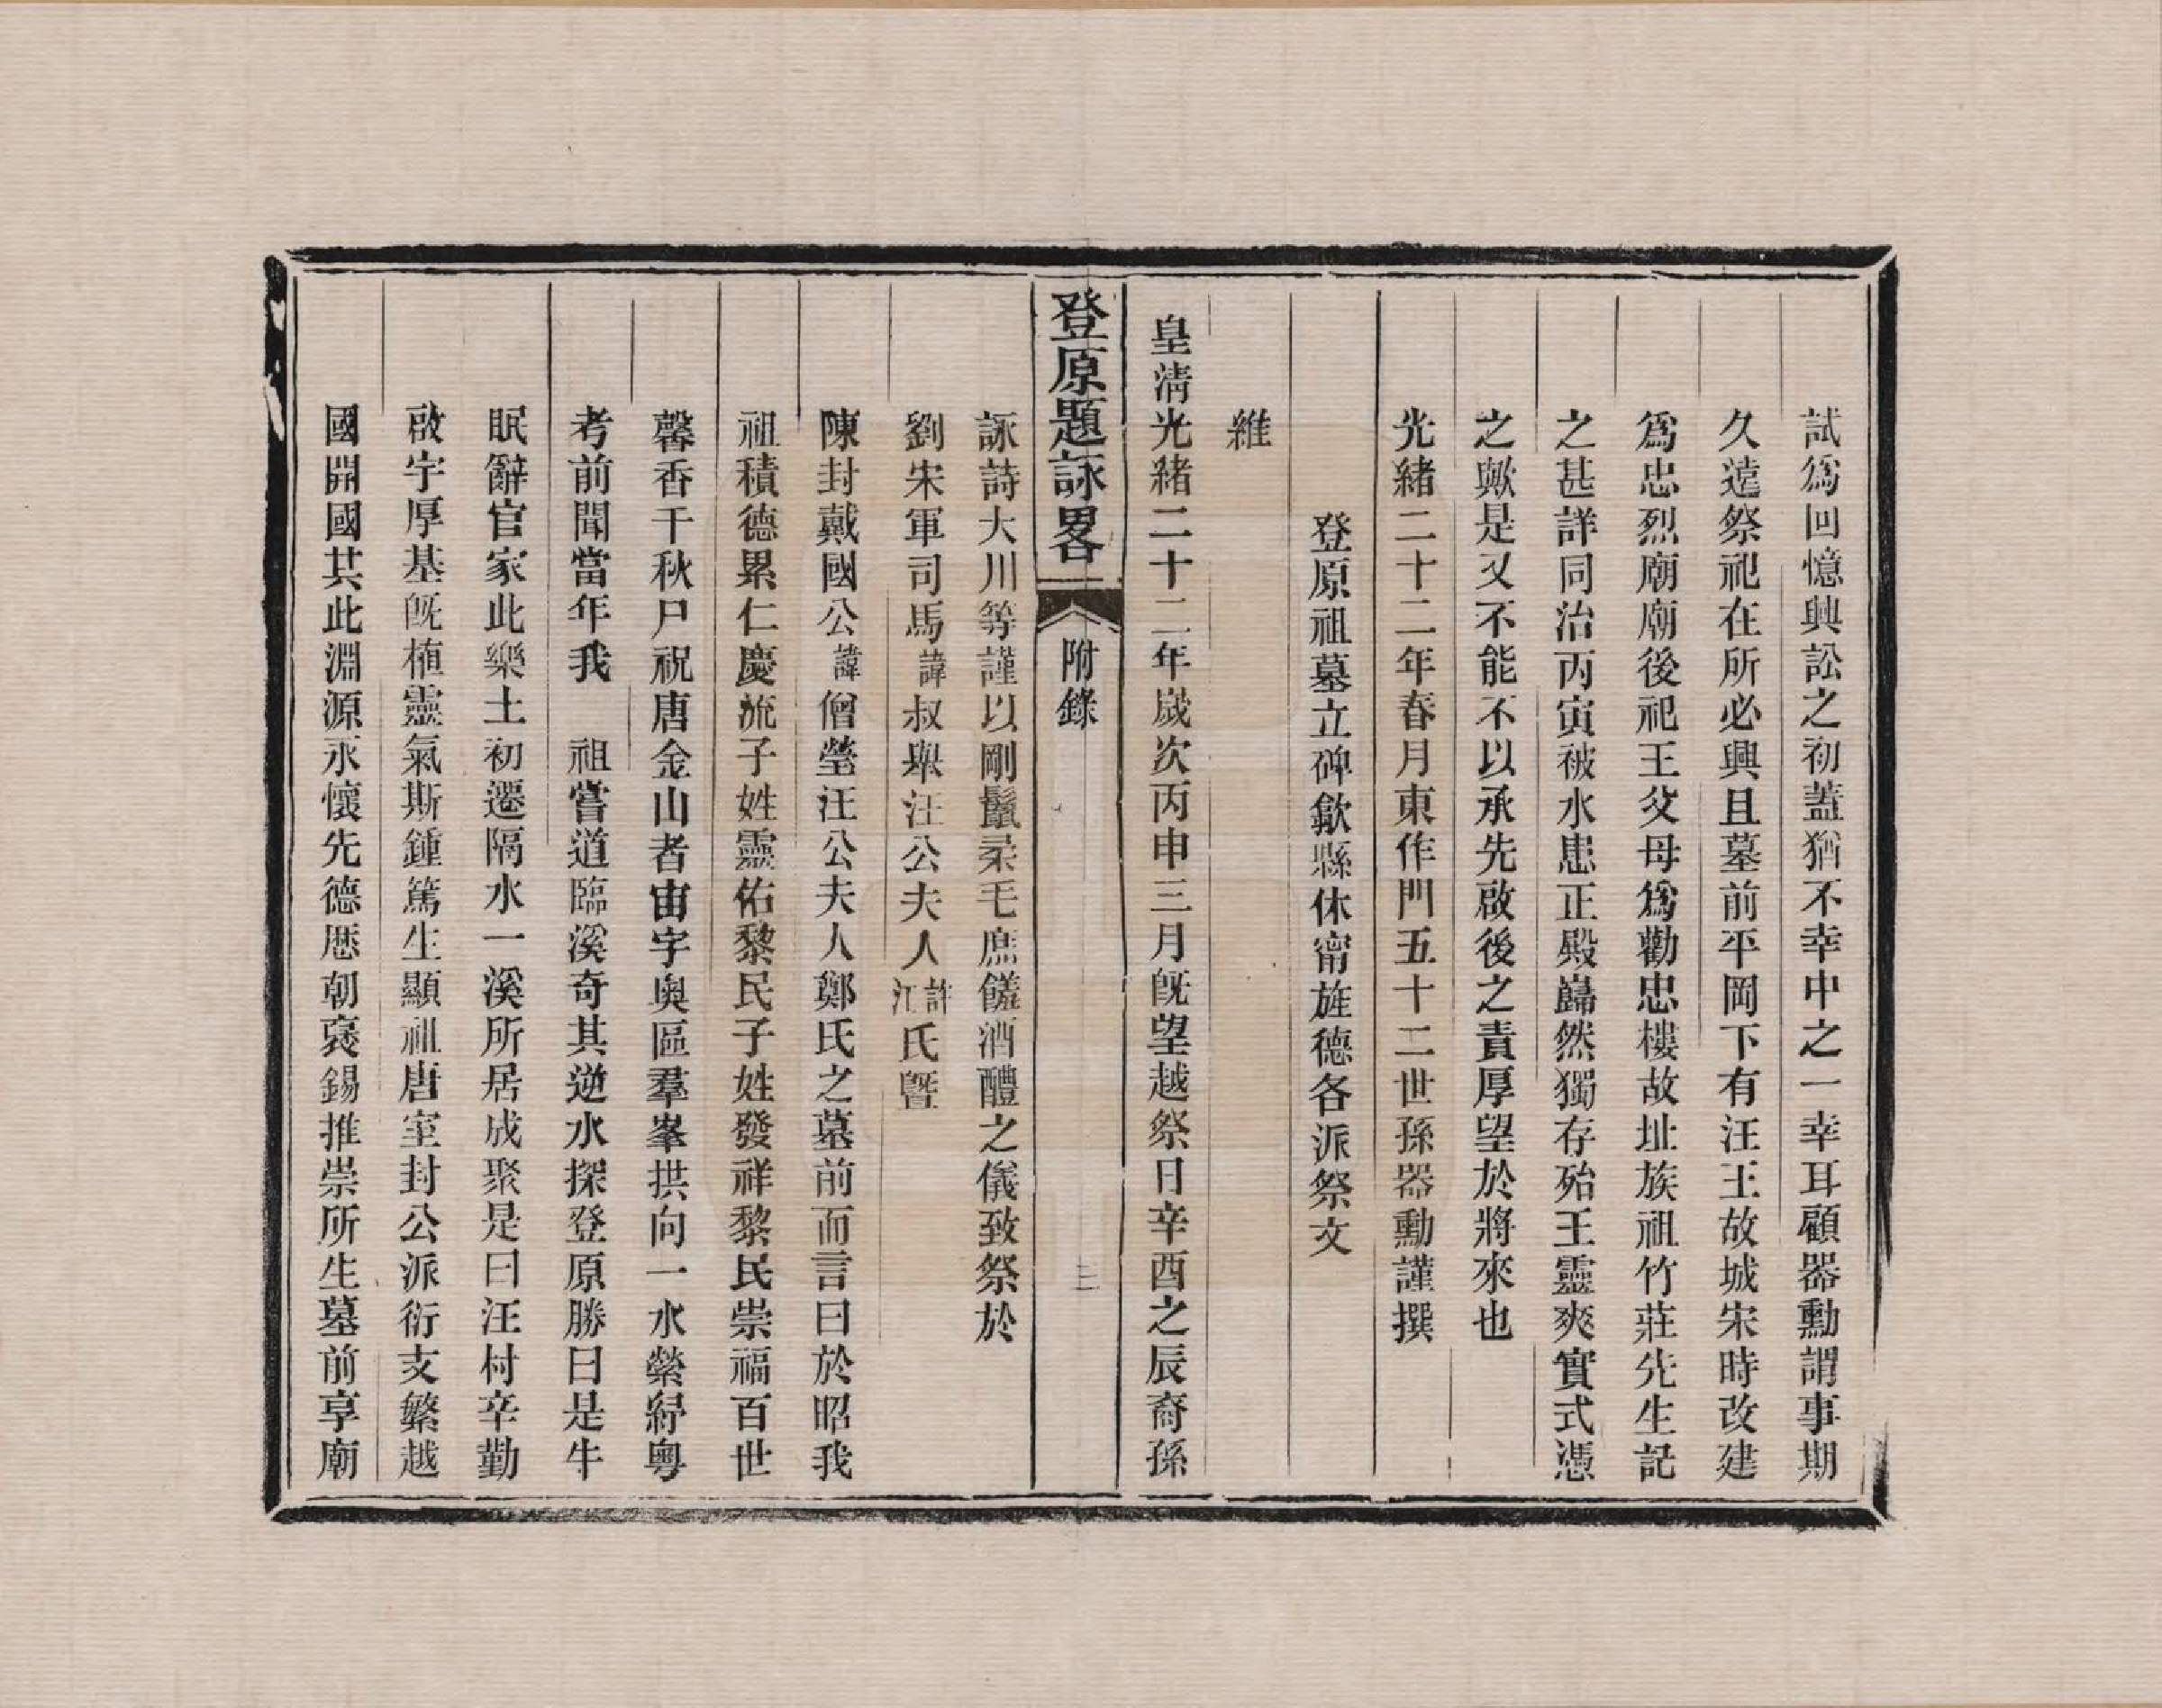 試爲回憶興訟之初蓋猶不幸中之一幸耳顧器勳謂事期
久遠祭祀在所必興且墓前平岡下有汪王故城宋時改建
爲忠烈廟廟後祀王父母爲勸忠樓故址族祖竹莊先生記
之甚詳同治丙寅被水患正殿巋然獨存殆王靈爽實式憑
之歟是又不能不以承先啟後之責厚望於將來也
光緒二十二年春月東作門五十二世孫器勳謹撰
登原祖墓立碑歙縣休甯旌德各派祭文
維
皇淸光緒二十二年歲次丙申三月旣望越祭日辛酉之辰裔孫
登原題詠畧 附錄 三
詠詩大川等謹以剛鬣柔毛庶饈酒醴之儀致祭於
劉宋軍司馬諱叔舉汪公夫人許江氏曁
陳封戴國公諱僧瑩汪公夫人鄭氏之墓前而言曰於昭我
祖積德累仁慶流子姓靈佑黎民子姓發祥黎民崇福百世
馨香千秋尸祝唐金山者宙宇奥區羣峯拱向一水縈紆粵
考前聞當年我 祖嘗道臨溪奇其逆水探登原勝曰是牛
眠辭官家此樂土初遷隔水一溪所居成聚是曰汪村辛勤
啟宇厚基旣植靈氣斯鍾篤生顯祖唐室封公派衍支繁越
國開國其此淵源永懷先德厯朝褒錫推崇所生墓前享廟